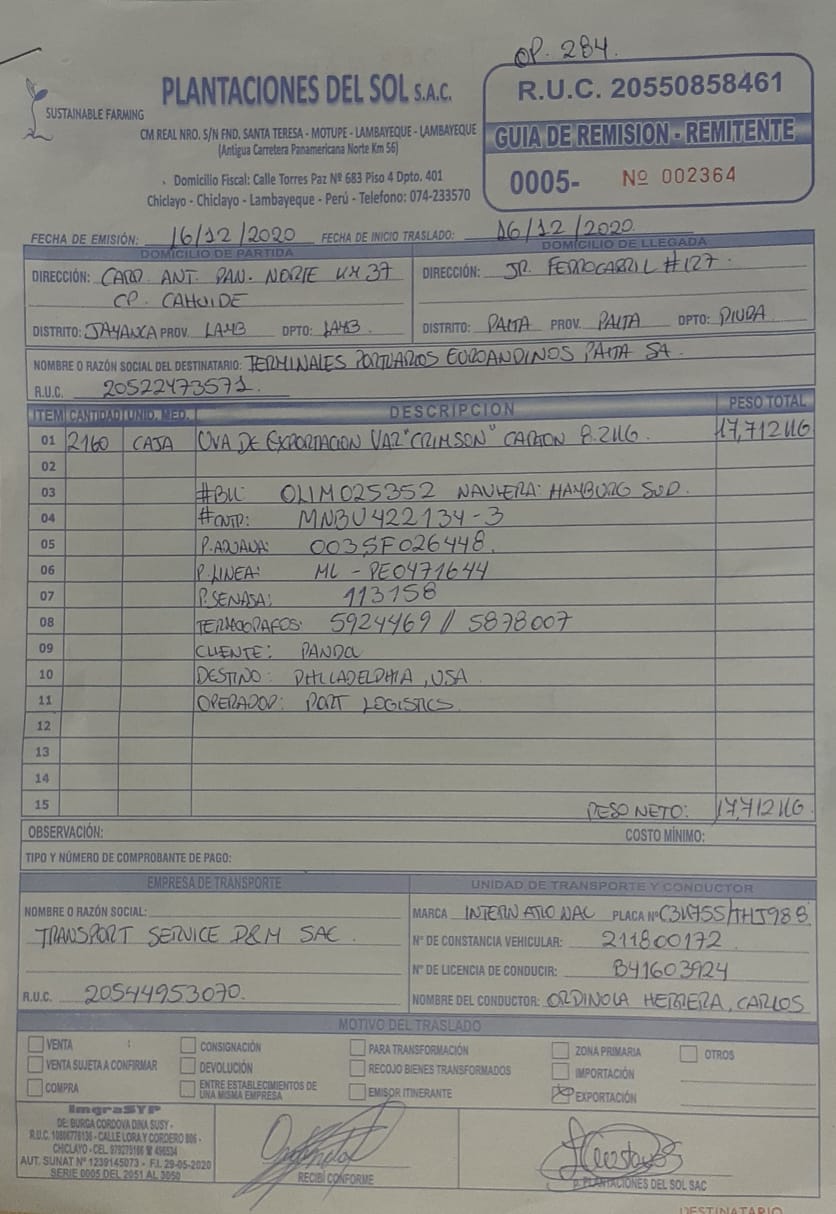 OP. 284.
PLANTACIONES DEL SOL S.A.C.
SUSTAINABLE FARMING
CM REAL NRO. S/N FND. SANTA TERESA - MOTUPE - LAMBAYEQUE - LAMBAYEQUE
(Antigua Carretera Panamericana Norte Km 56)
Domicilio Fiscal: Calle Torres Paz Nº 683 Piso 4 Dpto. 401
Chiclayo - Chiclayo - Lambayeque - Perú - Telefono: 074-233570
R.U.C. 20550858461
GUIA DE REMISION - REMITENTE
0005- Nº 002364
FECHA DE EMISIÓN: 16/12/2020 FECHA DE INICIO TRASLADO: 16/12/2020
DOMICILIO DE PARTIDA
DIRECCIÓN: CARR. ANT. PAN. NORTE KM 37
CP. CAHUIDE
DISTRITO: JAYANCA PROV. LAMB DPTO: LAMB.
DOMICILIO DE LLEGADA
DIRECCIÓN: JR. FERROCARRIL #127.
DISTRITO: PAITA PROV. PAITA DPTO: PIURA
NOMBRE O RAZÓN SOCIAL DEL DESTINATARIO: TERMINALES PORTUARIOS EUROANDINOS PAITA SA.
R.U.C. 20522473571.
ITEM CANTIDAD UNID. MED. DESCRIPCION PESO TOTAL
01 2160 CAJA UVA DE EXPORTACION VAR "CRIMSON" CARTON 8.2KG. 17,712KG
02
03 #BK: OLIM025352 NAVIERA: HAMBURG SUD.
04 #CNTR: MNBU422134-3
05 P.ADUANA: 003SF026448.
06 P.LINEA: ML-PE0471644
07 P.SENASA: 113158
08 TERMOGRAFOS: 5924469 // 5878007
09 CLIENTE: PANDOL
10 DESTINO: PHILLADELPHIA, USA
11 OPERADOR: PORT LOGISTICS.
12
13
14
15 PESO NETO: 17,712KG
OBSERVACIÓN: COSTO MÍNIMO:
TIPO Y NÚMERO DE COMPROBANTE DE PAGO:
EMPRESA DE TRANSPORTE
NOMBRE O RAZÓN SOCIAL:
TRANSPORT SERVICE D&M SAC.
R.U.C. 20544953070.
UNIDAD DE TRANSPORTE Y CONDUCTOR
MARCA INTERNATIONAL PLACA Nº C3W755/THJ988
Nº DE CONSTANCIA VEHICULAR: 211800172
Nº DE LICENCIA DE CONDUCIR: B41603924
NOMBRE DEL CONDUCTOR: ORDINOLA HERRERA, CARLOS
MOTIVO DEL TRASLADO
VENTA
VENTA SUJETA A CONFIRMAR
COMPRA
CONSIGNACIÓN
DEVOLUCIÓN
ENTRE ESTABLECIMIENTOS DE
UNA MISMA EMPRESA
PARA TRANSFORMACIÓN
RECOJO BIENES TRANSFORMADOS
EMISOR ITINERANTE
ZONA PRIMARIA
IMPORTACIÓN
EXPORTACIÓN
OTROS
ImgraSYP
DE: BURGA CORDOVA DINA SUSY -
R.U.C. 10806776136 - CALLE LORA Y CORDERO 806 -
CHICLAYO - CEL. 979275166
AUT. SUNAT Nº 1239145073 - F.I. 29-05-2020
SERIE 0005 DEL 2051 AL 3050
RECIBÍ CONFORME
p. PLANTACIONES DEL SOL SAC
DESTINATARIO